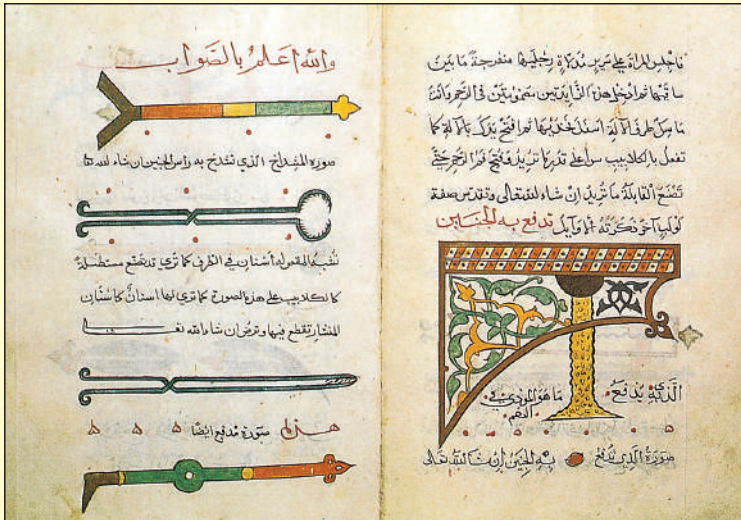 فاجلس المرأة على سرير مدلاة رجليها منفرجة ما بين
ساقيها ثم ادخل هذا الزايدتين في الرحم وانت
ماسك طرف الآلة اسفل فخذيها ثم افتح يدك بالآلة كما
تفعل بالكلاليب سواء على قدر ما تريد فتح فم الرحم حتى
تضع القابلة ما تريد ان شاء الله تعالى وتقدس صفة
لولب آخر ذكرته الاوايل تدفع به الجنين
الذي يدفع ما هو الموذي في
الفم
صورة الذي تدفع به الجنين ان شا الله تعالى
والله اعلم بالصواب
صورة المشداخ الذي تشدخ به راس الجنين ان شاء الله
اسنان في الطرف كما ترى قد تصنع مستطيلة
كالكلاليب على هذه الصورة كما ترى لها اسنان كاسنان
المنشار تقطع فيها وترض ان شاء الله
هذا صورة مدفع ايضا